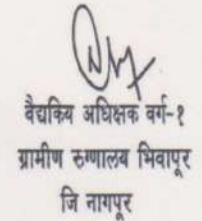 वैद्यकिय अधिक्षक वर्ग-१
ग्रामीण रुग्णालय भिवापूर
जि नागपूर